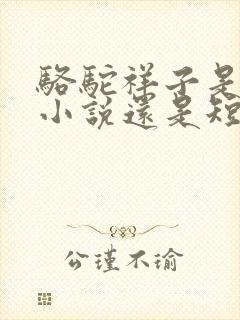 駱駝祥子是
小說還是短
公瑾不瑜